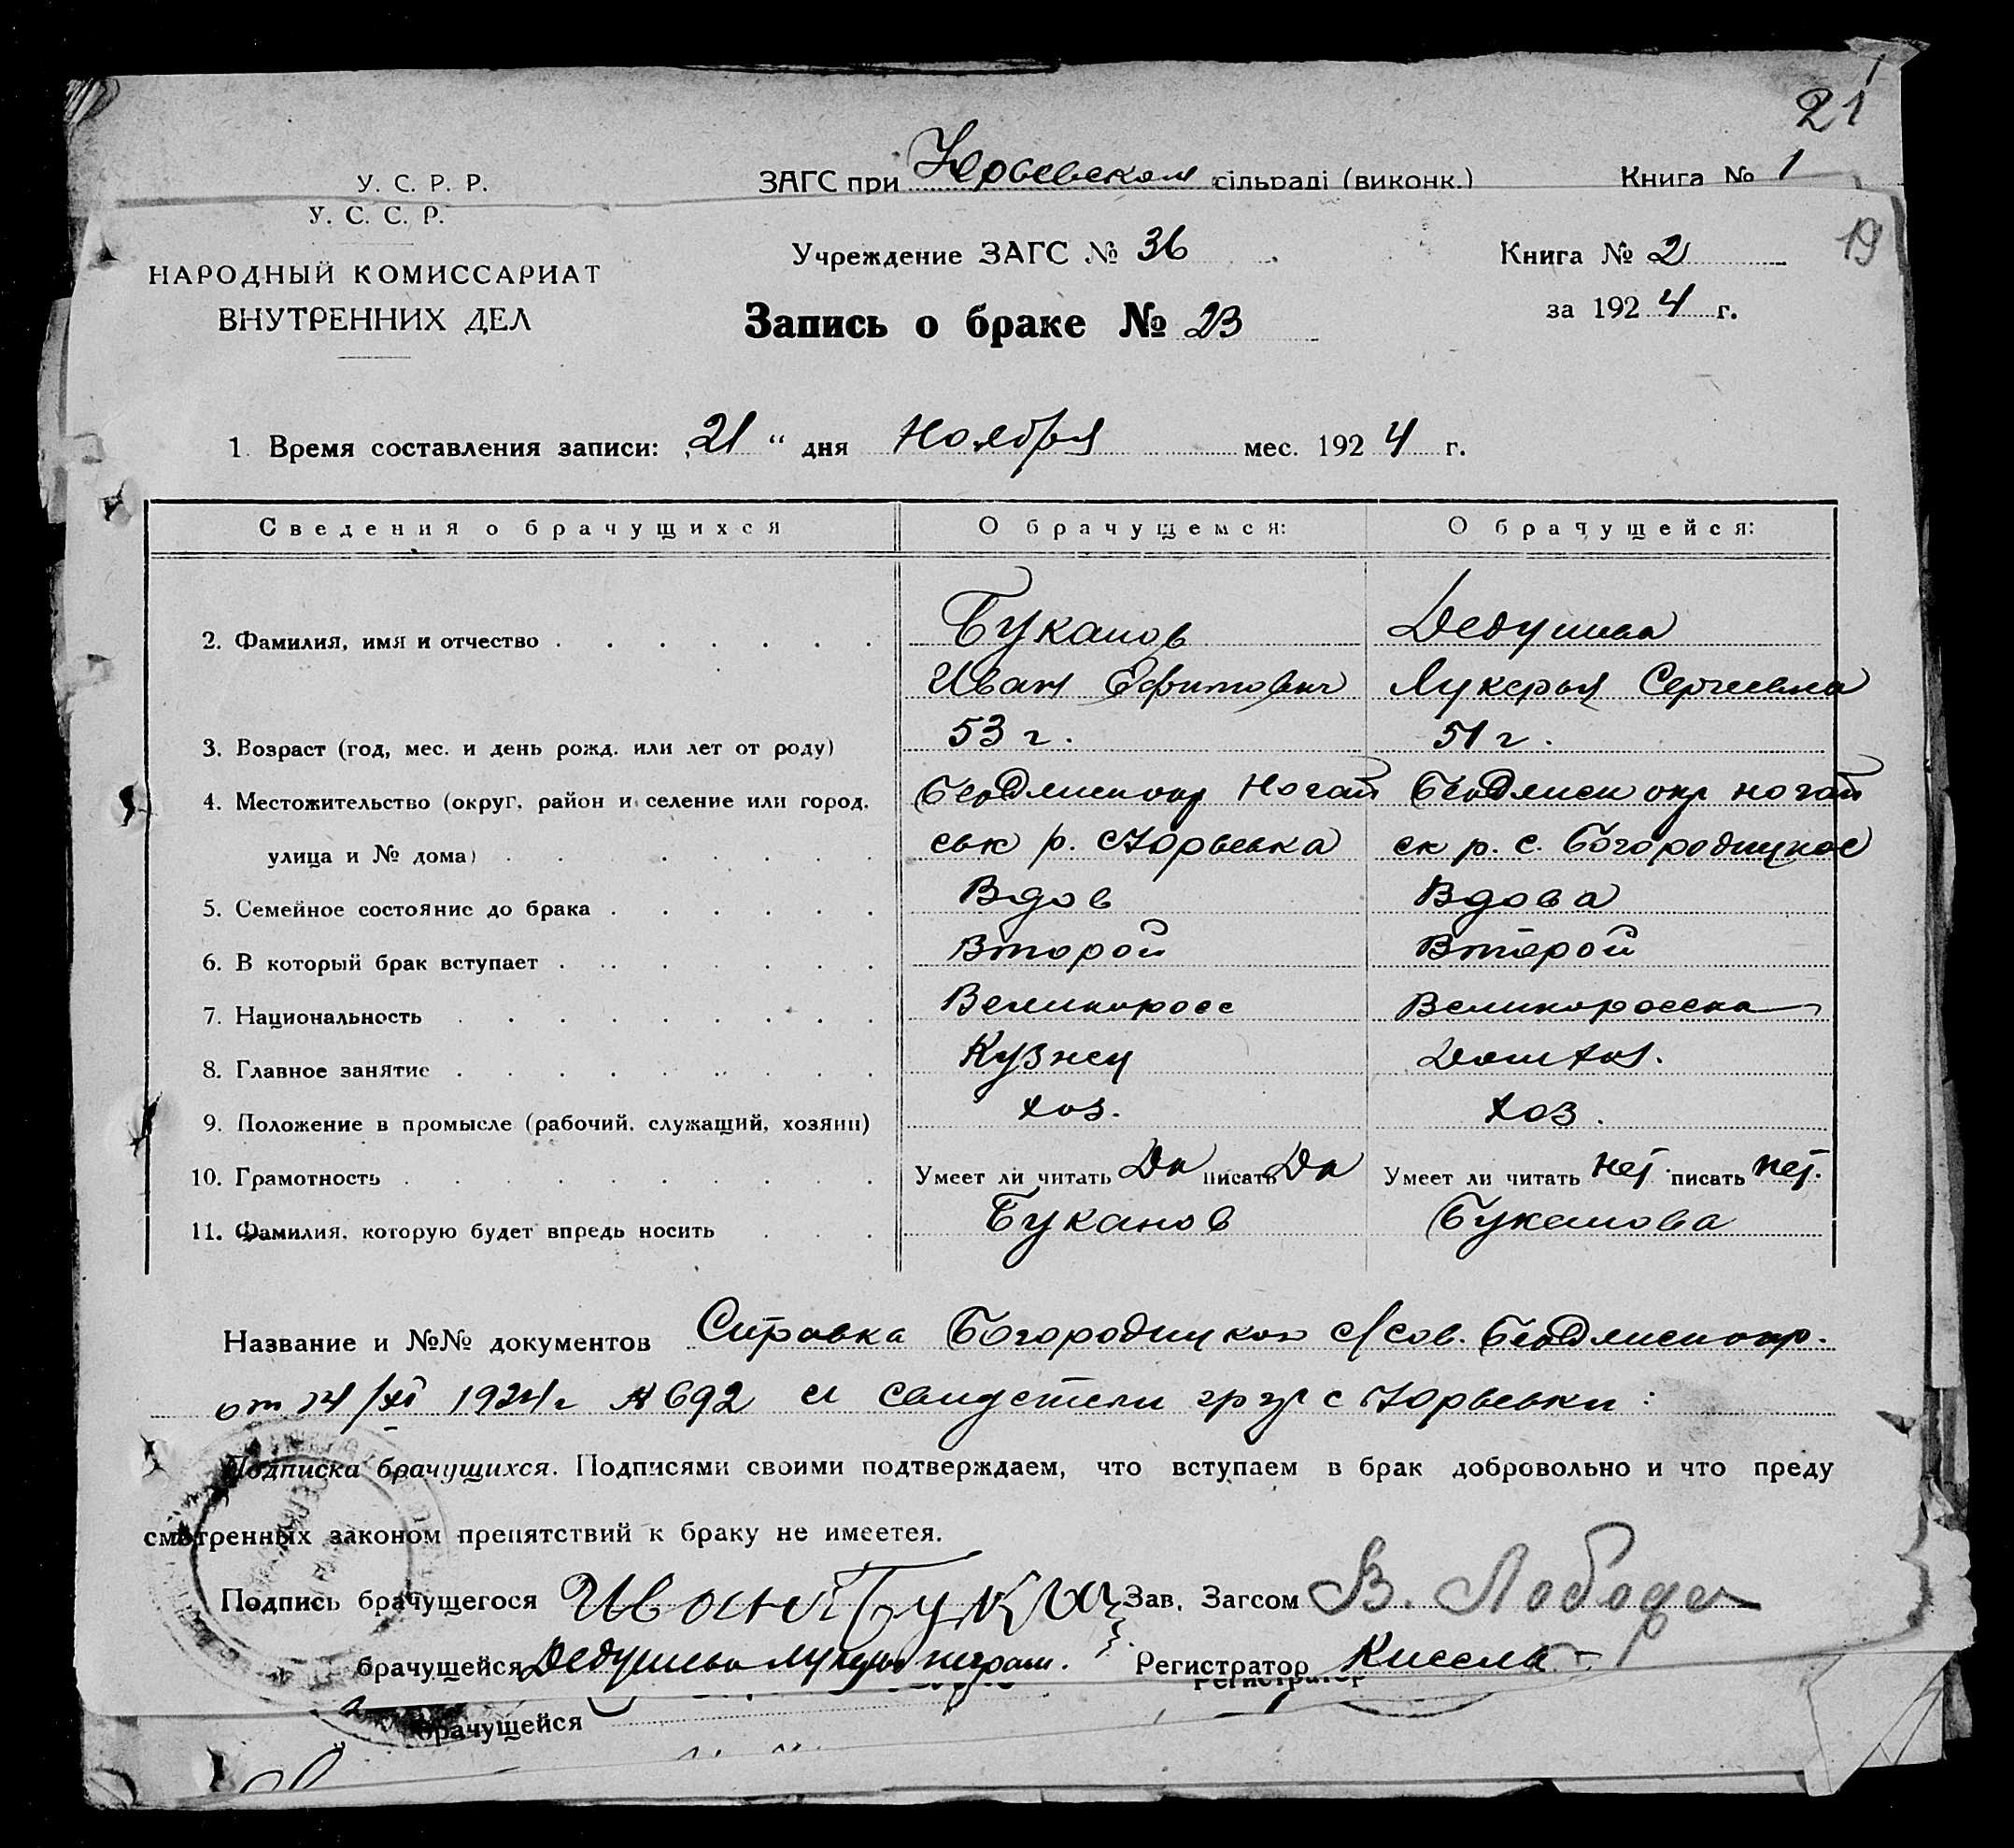 21
У. С. Р. Р.
ЗАГС при Юрьевском сільраді (виконк.) Книга № 1
У. С. С. Р.
19
НАРОДНЫЙ КОМИССАРИАТ
ВНУТРЕННИХ ДЕЛ
Учреждение ЗАГС № 36
Книга № 2
Запись о браке № 23
за 1924 г.
1. Время составления записи: „21“ дня Ноября мес. 1924 г.
Сведения о брачущихся О брачущемся: О брачущейся:
2. Фамилия, имя и отчество Буканов Дедушева
Иван Ефимович Лукерья Сергиевна
3. Возраст (год, мес. и день рожд. или лет от роду) 53 г. 51 г.
4. Местожительство (округ, район и селение или город, Ногай ногай
улица и № дома) ськ р. с Юрьевка ск р. с. Богородицкое
5. Семейное состояние до брака Вдов Вдова
6. В который брак вступает Второй Второй
7. Национальность Великоросс Великоросска
8. Главное занятие Кузнец Дом хоз.
9. Положение в промысле (рабочий, служащий, хозяин) хоз. хоз.
10. Грамотность Умеет ли читать Да писать Да Умеет ли читать нет писать нет.
11. Фамилия, которую будет впредь носить Буканов Буканова
Название и №№ документов Справка Богородицкого с/сов.
от 14/XI 1924 г № 692 и свидетели гр гр с Юрьевки:
Подписка брачущихся. Подписями своими подтверждаем, что вступаем в брак добровольно и что преду
смотренных законом препятствий к браку не имеется.
Подпись брачущегося Иван Зав. Загсом В. Лобода
брачущейся Дедушева Лукерья неграм. Регистратор Кисель
Регистратор
брачущейся